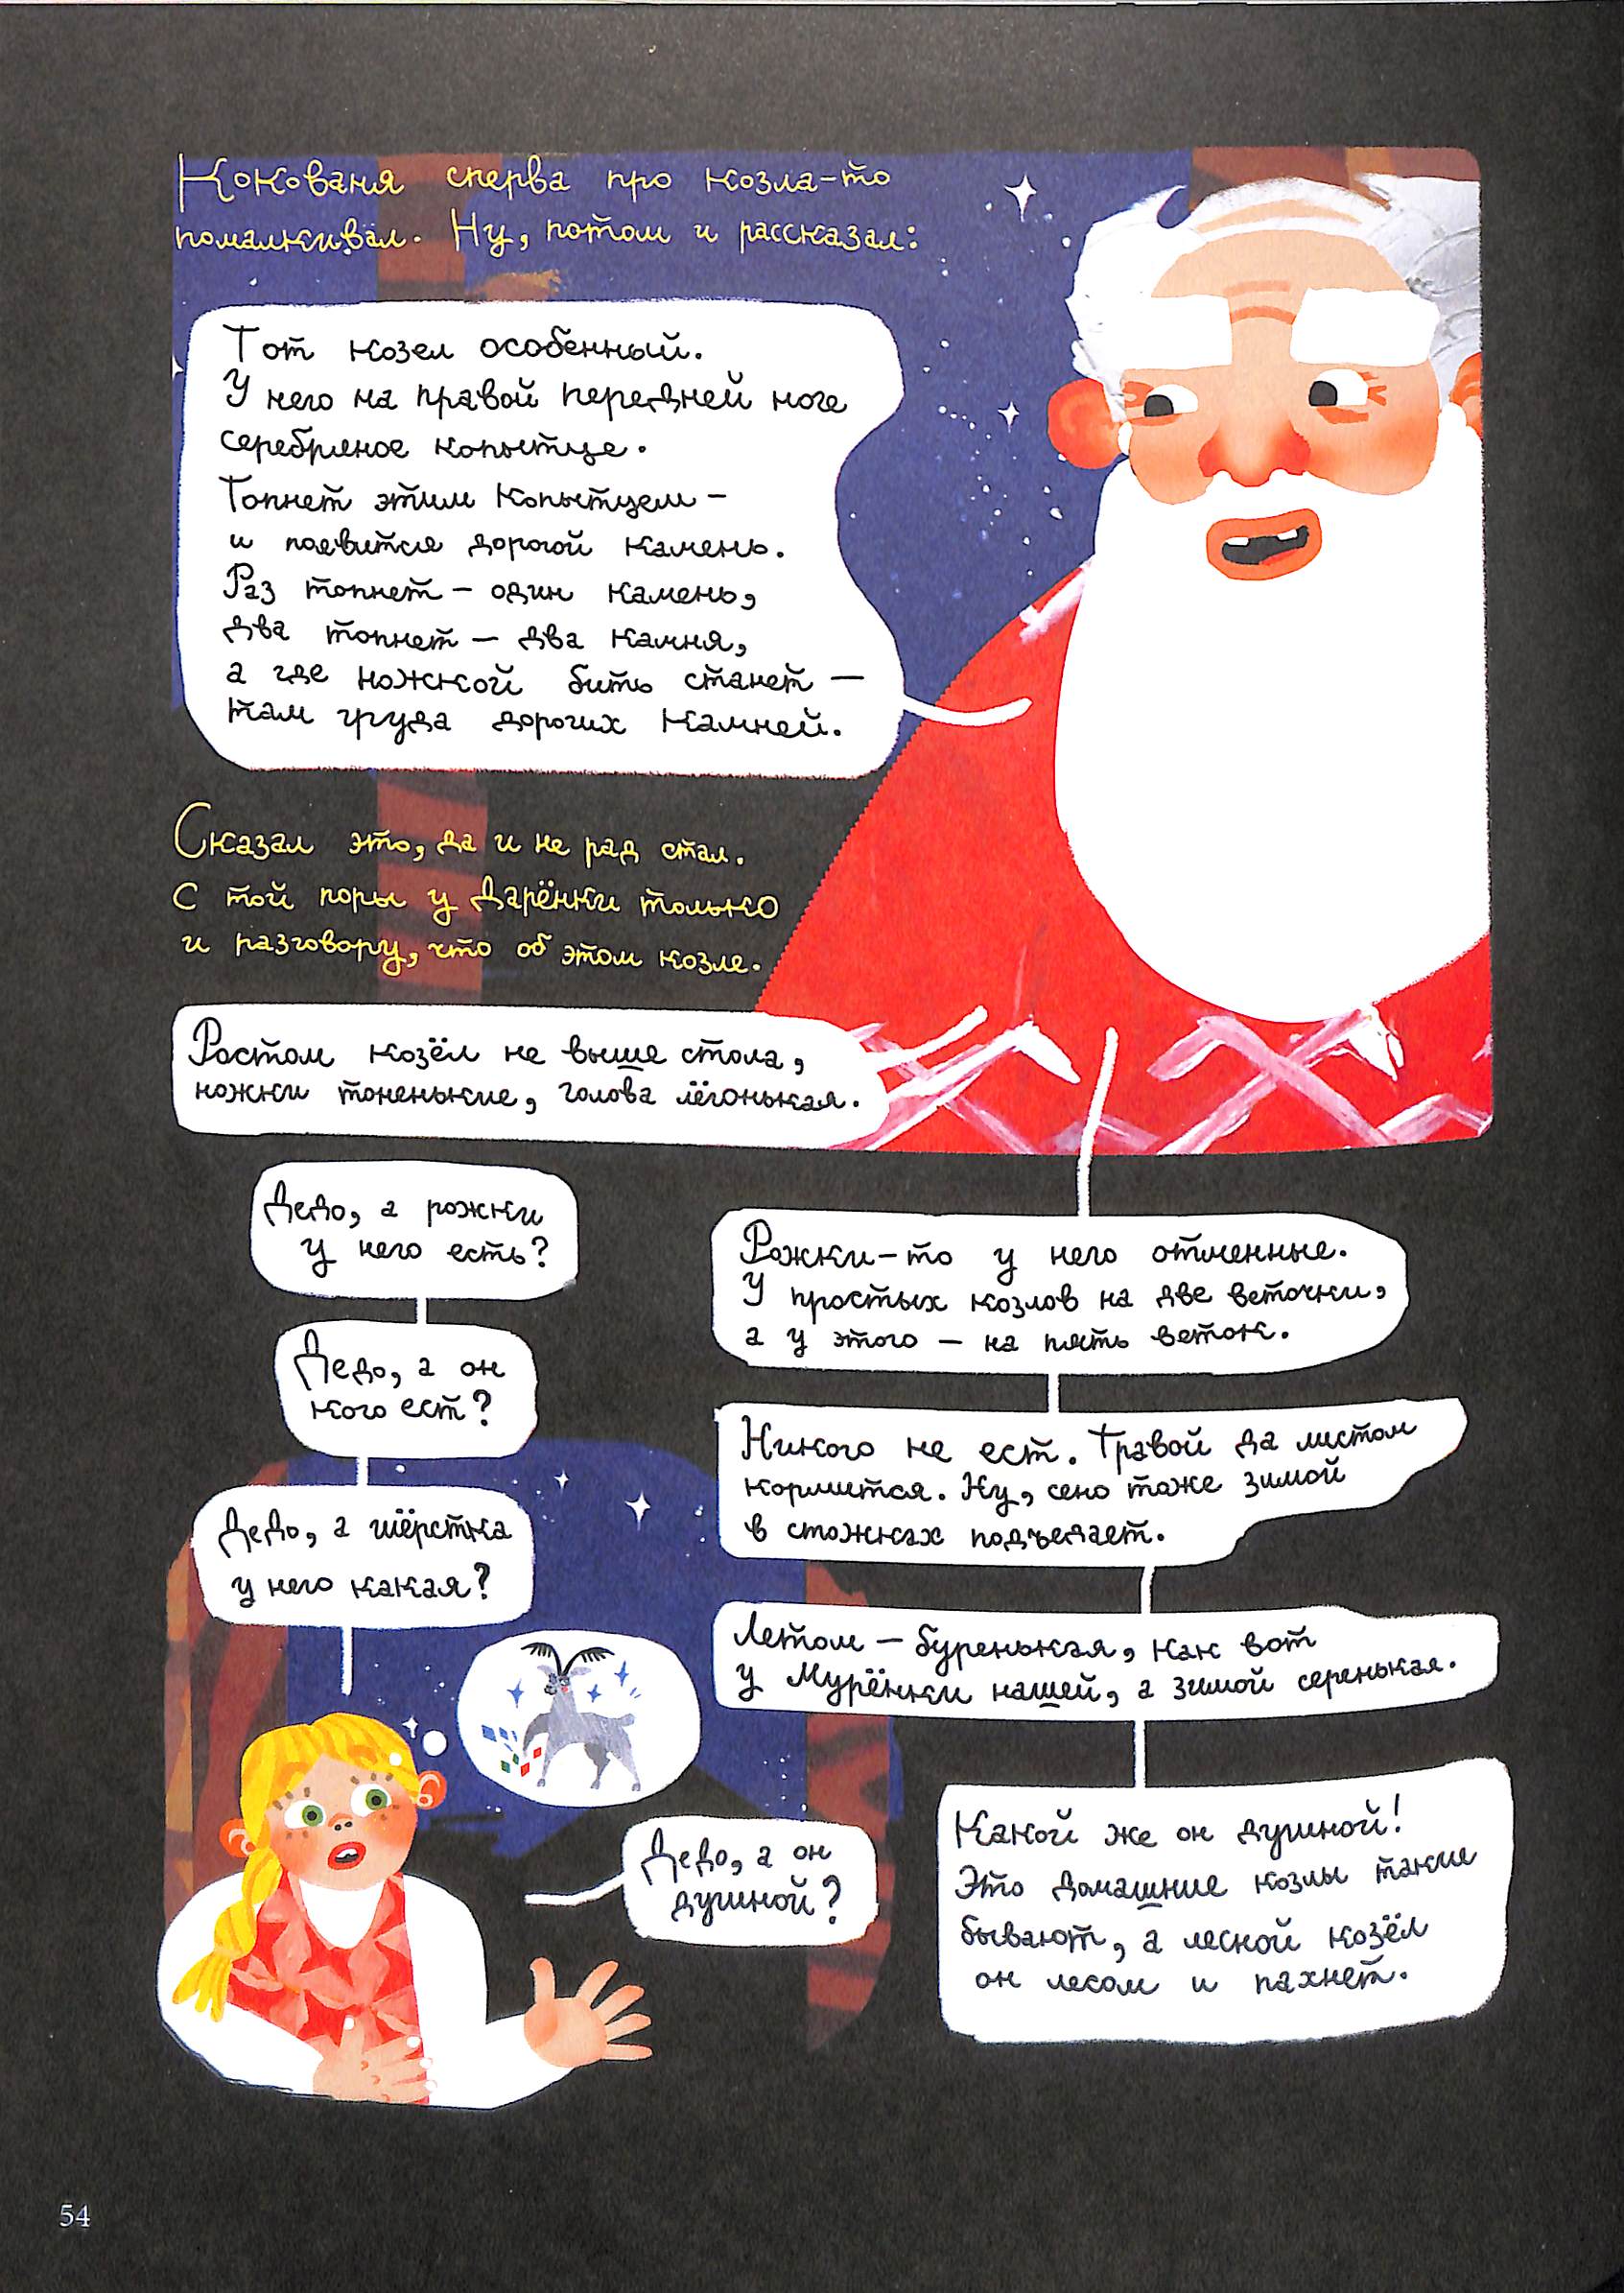 Кокованя сперва про козла-то
помалкивал. Ну, потом и рассказал:
Тот козел особенный.
У него на правой передней ноге
серебряное копытце.
Топнет этим копытцем –
и появится дорогой камень.
Раз топнет – один камень,
два топнет – два камня,
а где ножкой бить станет –
там груда дорогих камней.
Сказал это, да и не рад стал.
С той поры у Дарёнки только
и разговору, что об этом козле.
Ростом козёл не выше стола,
ножки тоненькие, голова лёгонькая.
Дедо, а рожки
у него есть?
Рожки-то у него отменные.
У простых козлов на две веточки,
а у этого – на пять веток.
Дедо, а он
кого ест?
Никого не ест. Травой да листом
кормится. Ну, сено тоже зимой
в стожках подъедает.
Дедо, а шёрстка
у него какая?
Летом – буренькая, как вот
у Мурёнки нашей, а зимой серенькая.
Дедо, а он
душной?
Какой же он душной!
Это домашние козлы такие
бывают, а лесной козёл
он лесом и пахнет.
54